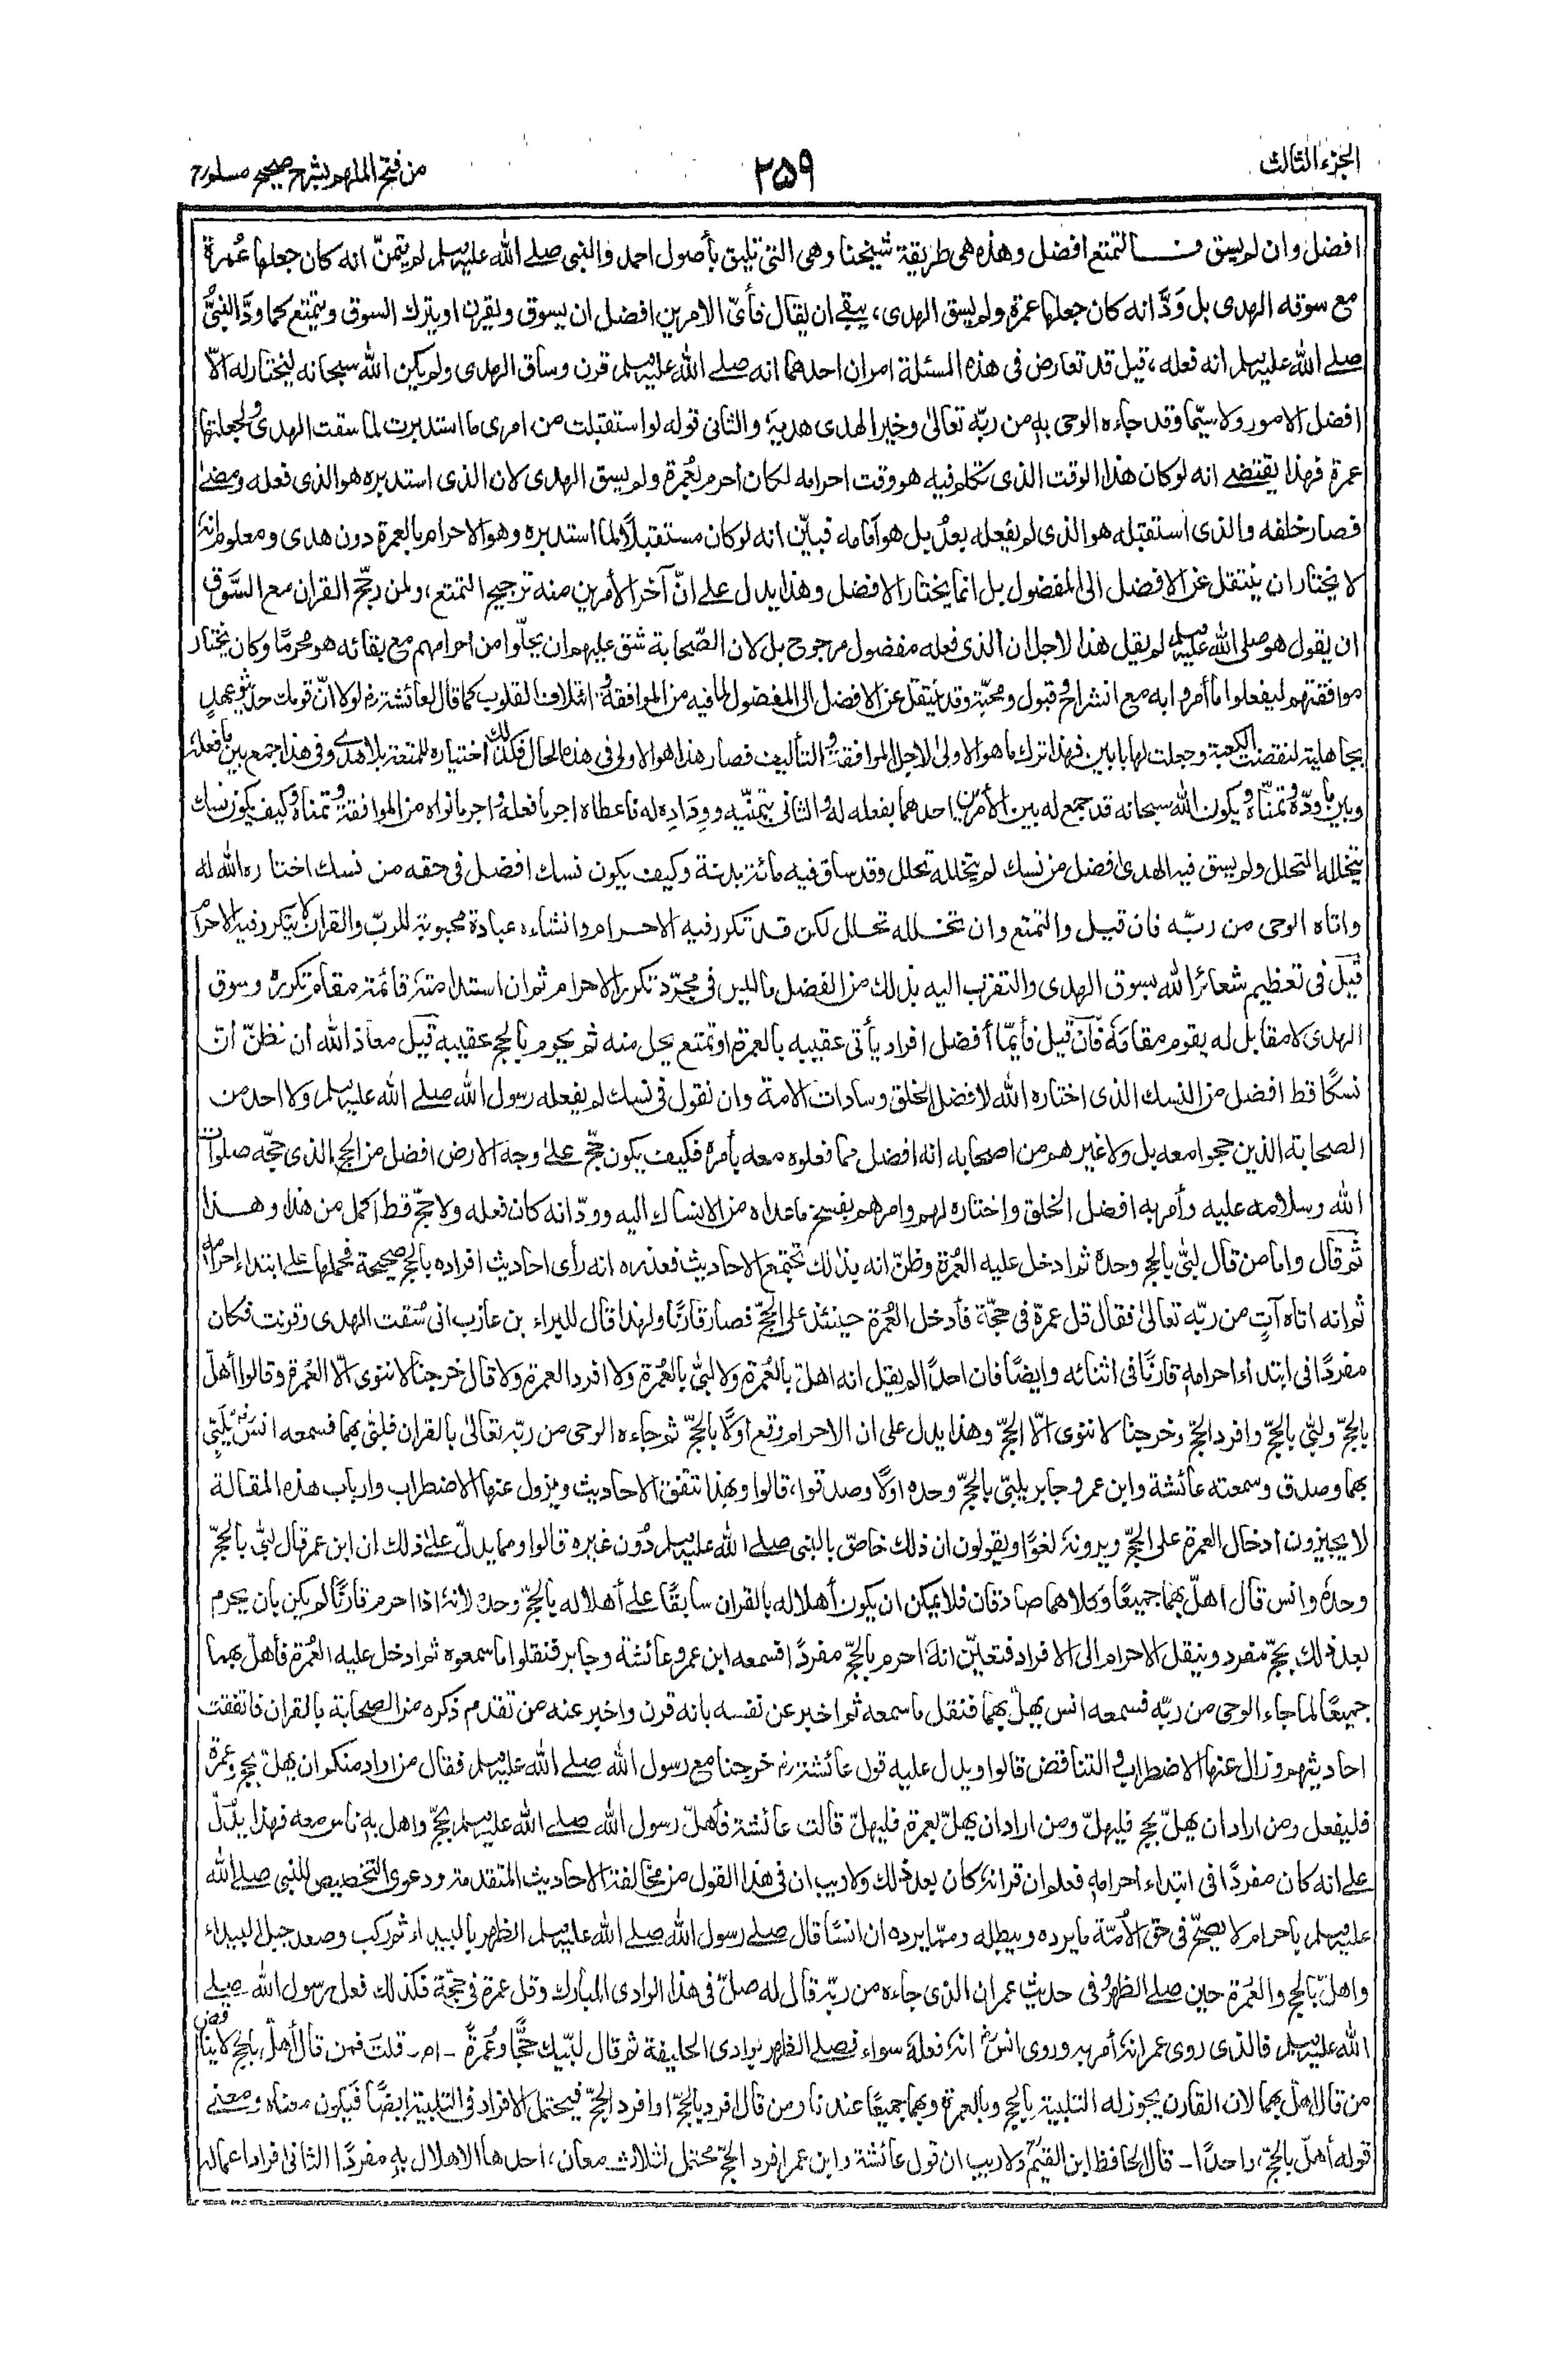 الجزء الثالث
٢٥٩
من فتح الملهم بشرح صحيح مسلم رح
افضل وان لم يسق فالتمتع افضل وهذه هى طريقة شيخنا وهى التى تليق بأصول احمد والنبى صلے الله علیہ وسلم لم يتمنّ انه كان جعلها عُمرة
مع سوقه الهدى بل وَدَّ انه كان جعلها عمرة ولم يسق الهدى، بقى ان يقال فأىّ الامرين افضل ان يسوق ويقرن او يترك السوق ويتمتع كما ودَّ النبىُّ
صلے الله علیہ وسلم انه فعله، قيل قد تعارض فى هذه المسئلة امران احدهما انه صلے الله علیہ وسلم قرن وساق الهدى ولم يكن الله سبحانه ليختار له الّا
افضل الامور ولا سيّما وقد جاءه الوحى بهٖ من ربّه تعالىٰ وخير الهدى هديهٗ والثانى قوله لو استقبلت من امرى ما استدبرت لما سقت الهدى ولجعلتها
عمرة فهذا يقتضے انه لو كان هذا الوقت الذى تكلم فيه هو وقت احرامه لكان أحرم بعُمرة ولم يسق الهدى لان الذى استدبره هو الذى فعله ومضےٰ
فصار خلفه والذى استقبله هو الذى لم يفعله بعدُ بل هو أمامه فبيّن انه لو كان مستقبلًا لما استدبره وهو الاحرام بالعمرة دون هدى ومعلوم انهٗ
لا يختار ان ينتقل عن الافضل الى المفضول بل انما يختار الافضل وهذا يدل على انّ آخر الأمرين منه ترجيح التمتع، ولمن رجّح القران مع السَّوق
ان يقول هو صلى الله علیہ وسلم لم يقل هذا لاجل ان الذى فعله مفضول مرجوح بل لان الصّحابة شق عليهم ان يحلّوا من احرامهم مع بقائه هو مُحرمًا وكان يختار
موافقتهم ليفعلوا ما أمروا به مع انشراح وقبول ومحبّة وقد ينتقل عن الافضل الى المفضول لما فيه من الموافقة وائتلاف القلوب كما قال لعائشة رض لولا انّ قومك حديثو عهدٍ
بجاهلية لنقضت الكعبة وجعلت لها بابين فهذا ترك ما هو الاولىٰ لاجل الموافقة والتأليف فصار هذا هو الاولى فى هذه الحال فكذلك اختياره للمتعة بلا هدى وفى هذا جمع بين ما فعلهٗ
وبين ما ودّه وتمنّاه ويكون الله سبحانه قد جمع له بين الأمرين احدهما بفعله له والثانى بتمنّيه ووِدَادِه له فاعطاه اجر ما فعله واجر ما نواه من الموافقة وتمناه وكيف يكون نسك
يتخلله التحلل ولم يسق فيه الهدى افضل من نسك لم يتخلله تحلل وقد ساق فيه مائة بدنة وكيف يكون نسك افضل فى حقه من نسك اختاره الله له
واتاه الوحى من ربّه فان قيل والتمتع وان تخلله تحلل لكن قد تكرر فيه الاحرام وانشاءه عبادة محبوبة للربّ والقران لا يتكرر فيه الاحرام
قيل فى تعظيم شعائر الله بسوق الهدى والتقرب اليه بذلك من الفضل ما ليس فى مجرّد تكرر الاحرام ثم ان استدامتهٗ قائمة مقام تكررهٖ وسوق
الهدى لا مقابل له يقوم مقامهٗ فان قيل فأيّما أفضل افراد يأتى عقيبه بالعمرة او تمتع يحل منه ثم يحرم بالحج عقيبه قيل معاذ الله ان نظنّ انّ
نسكًا قط افضل من النسك الذى اختاره الله لافضل الخلق وسادات الامة وان نقول فى نسك لم يفعله رسول الله صلے الله علیہ وسلم ولا احد من
الصحابة الذين حجوا معه بل ولا غيرهم من اصحابه انه افضل مما فعلوه معه بأمرهٖ فكيف يكون حجّ علےٰ وجه الارض افضل من الحج الذى حجّه صلوات
الله وسلامه عليه وأمر به افضل الخلق واختاره لهم وامرهم بفسخ ما عداه من الانساك اليه وودّ انه كان فعله ولا حجّ قط اكمل من هذا وهذا
ثم قال واما من قال لبّى بالحج وحدهٗ ثم ادخل عليه العُمرة وظنّ انه بذلك تجتمع الاحاديث فعذره انه رأى احاديث افراده بالحج صحيحة فحملها على ابتداء احرامه
ثم انه اتاه آتٍ من ربّه تعالىٰ فقال قل عمرة فى حجّة فأدخل العُمرة حينئذ على الحجّ فصار قارنًا ولهذا قال للبراء بن عازب انى سُقت الهدى وقرنت فكان
مفردًا فى ابتداء احرامهٖ قارنًا فى اثنائه وايضًا فان احدًا لم يقل انه اهلّ بالعُمرة ولا لبّىٰ بالعُمرة ولا افرد العمرة ولا قال خرجنا لا ننوى الّا العُمرة وقالوا أهلّ
بالحجّ ولبّى بالحجّ وافرد الحجّ وخرجنا لا ننوى الّا الحجّ وهذا يدل على ان الاحرام وقع اوّلًا بالحجّ ثم جاءه الوحى من ربّه تعالىٰ بالقران فلبّى بهما فسمعه انس رض يُلبّى
بهما وصدق وسمعته عائشة وابن عمر وجابر يلبّى بالحجّ وحده اوّلًا وصدقوا، قالوا وبهذا تتفق الاحاديث ويزول عنها الاضطراب وارباب هذه المقالة
لا يجيزون ادخال العمرة على الحجّ ويرونهٗ لغوًا ويقولون ان ذلك خاصّ بالنبى صلے الله علیہ وسلم دُون غيره قالوا ومما يدلّ علےٰ ذلك ان ابن عمر قال لبّى بالحجّ
وحدهٗ وانس قال اهلّ بهما جميعًا وكلاهما صادقان فلا يمكن ان يكون أهلاله بالقران سابقًا على أهلاله بالحجّ وحده لانهٗ اذا احرم قارنًا لم يكن بأن يحرم
بعد ذلك بحجّ مفرد وينقل الاحرام الى الافراد فتعيّن انهٗ احرم بالحجّ مفردًا فسمعه ابن عمر وعائشة وجابر فنقلوا ما سمعوه ثم ادخل عليه العُمرة فأهلّ بهما
جميعًا لما جاء الوحى من ربّه فسمعه انس يهلّ بهما فنقل ما سمعه ثم اخبر عن نفسه بانه قرن واخبر عنه من تقدم ذكره من الصحابة بالقران فاتفقت
احاديثهم وزال عنها الاضطراب والتناقض قالوا ويدل عليه قول عائشة رض خرجنا مع رسول الله صلے الله علیہ وسلم فقال من اراد منكم ان يهلّ بحج وعمرة
فليفعل ومن اراد ان يهلّ بحج فليهلّ ومن اراد ان يهلّ بعمرة فليهلّ قالت عائشة فأهلّ رسول الله صلے الله علیہ وسلم بحجّ واهل بهٖ ناس معه فهذا يدُلّ
علے انه كان مفردًا فى ابتداء احرامهٖ فعلم ان قرانهٗ كان بعد ذلك ولا ريب ان فى هذا القول من مخالفة الاحاديث المتقدمة ودعوى التخصيص للنبى صلے الله
علیہ وسلم بأحرام لا يصحّ فى حق الأمّة ما يرده ويبطله وممّا يرده ان انسًا قال صلے رسول الله صلے الله علیہ وسلم الظهر بالبيداء ثم ركب وصعد جبل البيداء
واهلّ بالحج والعُمرة حين صلے الظهر وفى حديث عمر ان الذى جاءه من ربّه قال له صلّ فى هذا الوادى المبارك وقل عمرة فى حجّة فكذلك فعل رسول الله صلے
الله علیہ وسلم فالذى روى عمر انهٗ أمر به وروى انس رض انهٗ فعلهٗ سواء فصلے الظهر بوادى الحليفة ثم قال لبّيك حجًّا وعُمرةً ۔ اھ ۔ قلت فمن قال أهلّ بالحجّ لا يناقض
من قال اهلّ بهما لان القارن يجوز له التلبية بالحج وبالعمرة وبهما جميعًا عندنا ومن قال افرد بالحجّ او افرد الحجّ فيحتمل الافراد فى التلبية ايضًا فيكون معناه ومعنے
قوله أهلّ بالحجّ، واحدًا ۔ قال الحافظ ابن القيم رح ولا ريب ان قول عائشة وابن عمر افرد الحجّ محتمل لثلاث معان، احدها الاهلال بهٖ مفردًا الثانى افراد اعماله